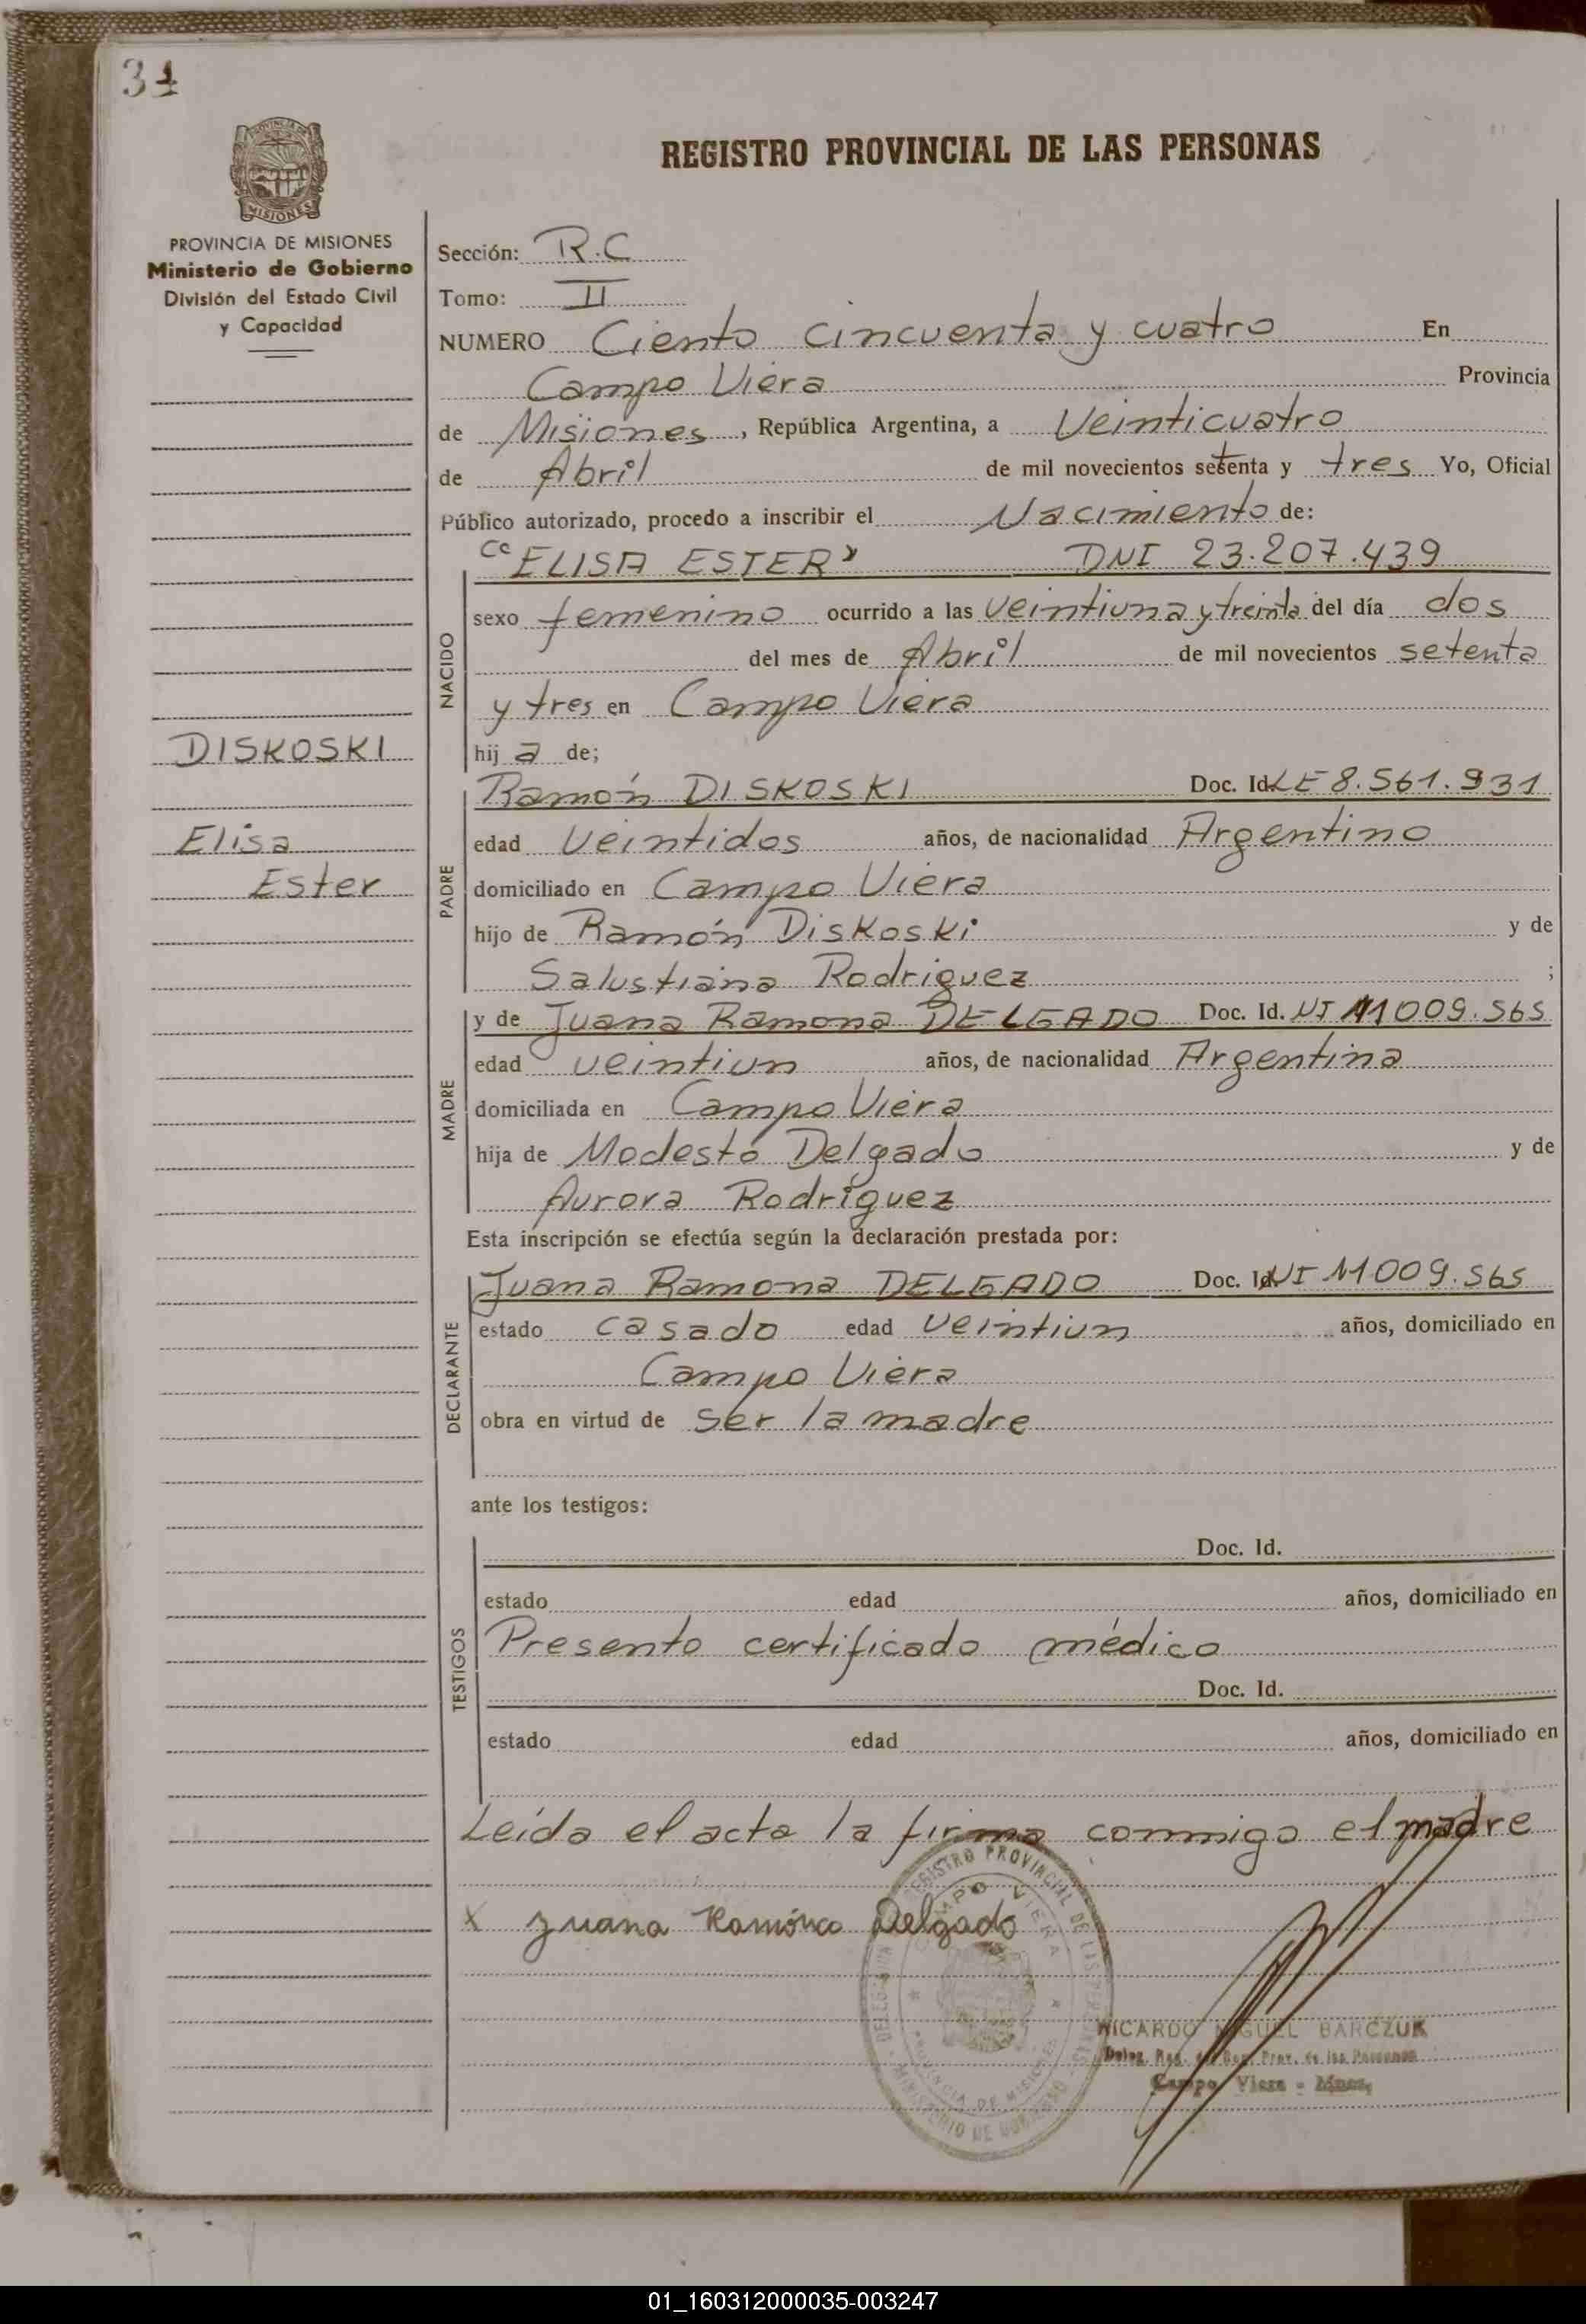 34
PROVINCIA DE MISIONES
MISIONES
PROVINCIA DE MISIONES
Ministerio de Gobierno
División del Estado Civil
y Capacidad
DISKOSKI
Elisa
Ester
REGISTRO PROVINCIAL DE LAS PERSONAS
Sección: R.C
Tomo: II
NUMERO Ciento cincuenta y cuatro En
Campo Viera Provincia
de Misiones, República Argentina, a Veinticuatro
de Abril de mil novecientos setenta y tres Yo, Oficial
Público autorizado, procedo a inscribir el Nacimiento de:
"ELISA ESTER" DNI 23.207.439
NACIDO
sexo femenino ocurrido a las veintiuna y treinta del día dos
del mes de Abril de mil novecientos setenta
y tres en Campo Viera
hij a de;
Ramón DISKOSKI Doc. Id. LE 8.561.931
PADRE
edad veintidos años, de nacionalidad Argentino
domiciliado en Campo Viera
hijo de Ramón Diskoski y de
Salustiana Rodriguez ;
y de Juana Ramona DELGADO Doc. Id. NI 11009.565
MADRE
edad veintiun años, de nacionalidad Argentina
domiciliada en Campo Viera
hija de Modesto Delgado y de
Aurora Rodriguez
Esta inscripción se efectúa según la declaración prestada por:
Juana Ramona DELGADO Doc. Id. NI 11009.565
DECLARANTE
estado casado edad veintiun años, domiciliado en
Campo Viera
obra en virtud de ser la madre
ante los testigos:
Doc. Id.
TESTIGOS
estado edad años, domiciliado en
Presento certificado médico
Doc. Id.
estado edad años, domiciliado en
Leída el acta la firma conmigo el madre
x Juana Ramona Delgado
REGISTRO PROVINCIAL DE LAS PERSONAS
CAMPO VIERA
PROVINCIA DE MISIONES
MINISTERIO DE GOBIERNO
RICARDO MIGUEL BARCZUK
Deleg. Reg. Prov. de las Personas
Campo Viera - Mnes.
01_160312000035-003247